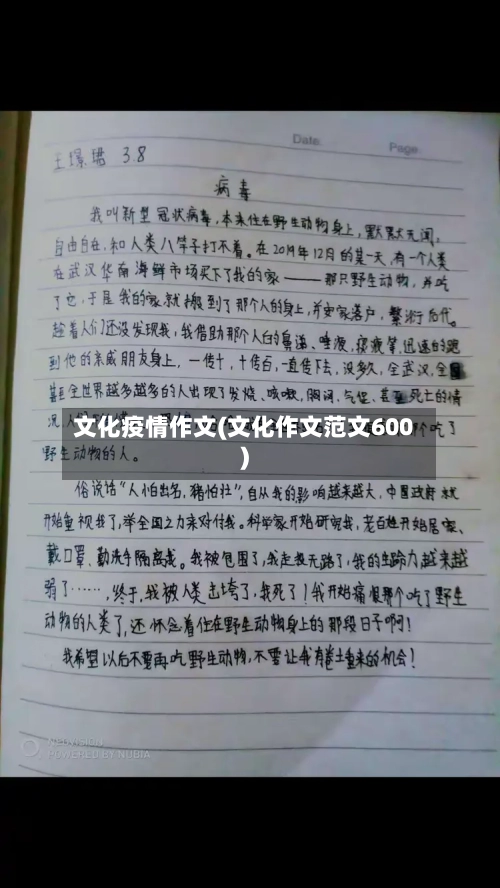 Date.
Page.
王璟珺 3.8
病毒
我叫新型冠状病毒,本来住在野生动物身上,默默无闻,
自由自在,和人类八竿子打不着。在2019年12月的某一天,有一个人类
在武汉华南海鲜市场买下了我的家——那只野生动物,并吃
了它,于是我的家就搬到了那个人的身上,并安家落户,繁衍后代。
趁着人们还没发现我,我借助那个人的鼻涕、唾液、痰液等,迅速的跑
到他的亲戚朋友身上,一传十,十传百,一直传下去,没多久,全武汉,全国
甚至全世界越多越多的人出现了发烧、咳嗽,胸闷,气促,甚至死亡的情
况
吃了
文化疫情作文(文化作文范文600
)
野生动物的人。
俗说话“人怕出名,猪怕壮”,自从我的影响越来越大,中国政府就
开始重视我了,举全国之力来对付我。科学家开始研究我,老百姓开始居家、
戴口罩、勤洗手隔离我。我被包围了,我走投无路了,我的生命力越来越
弱了……,终于,我被人类击垮了,我死了!我开始痛恨那个吃了野生
动物的人类了,还怀念着住在野生动物身上的那段日子啊!
我希望以后不要再吃野生动物,不要让我有卷土重来的机会!
POWERED BY NUBIA